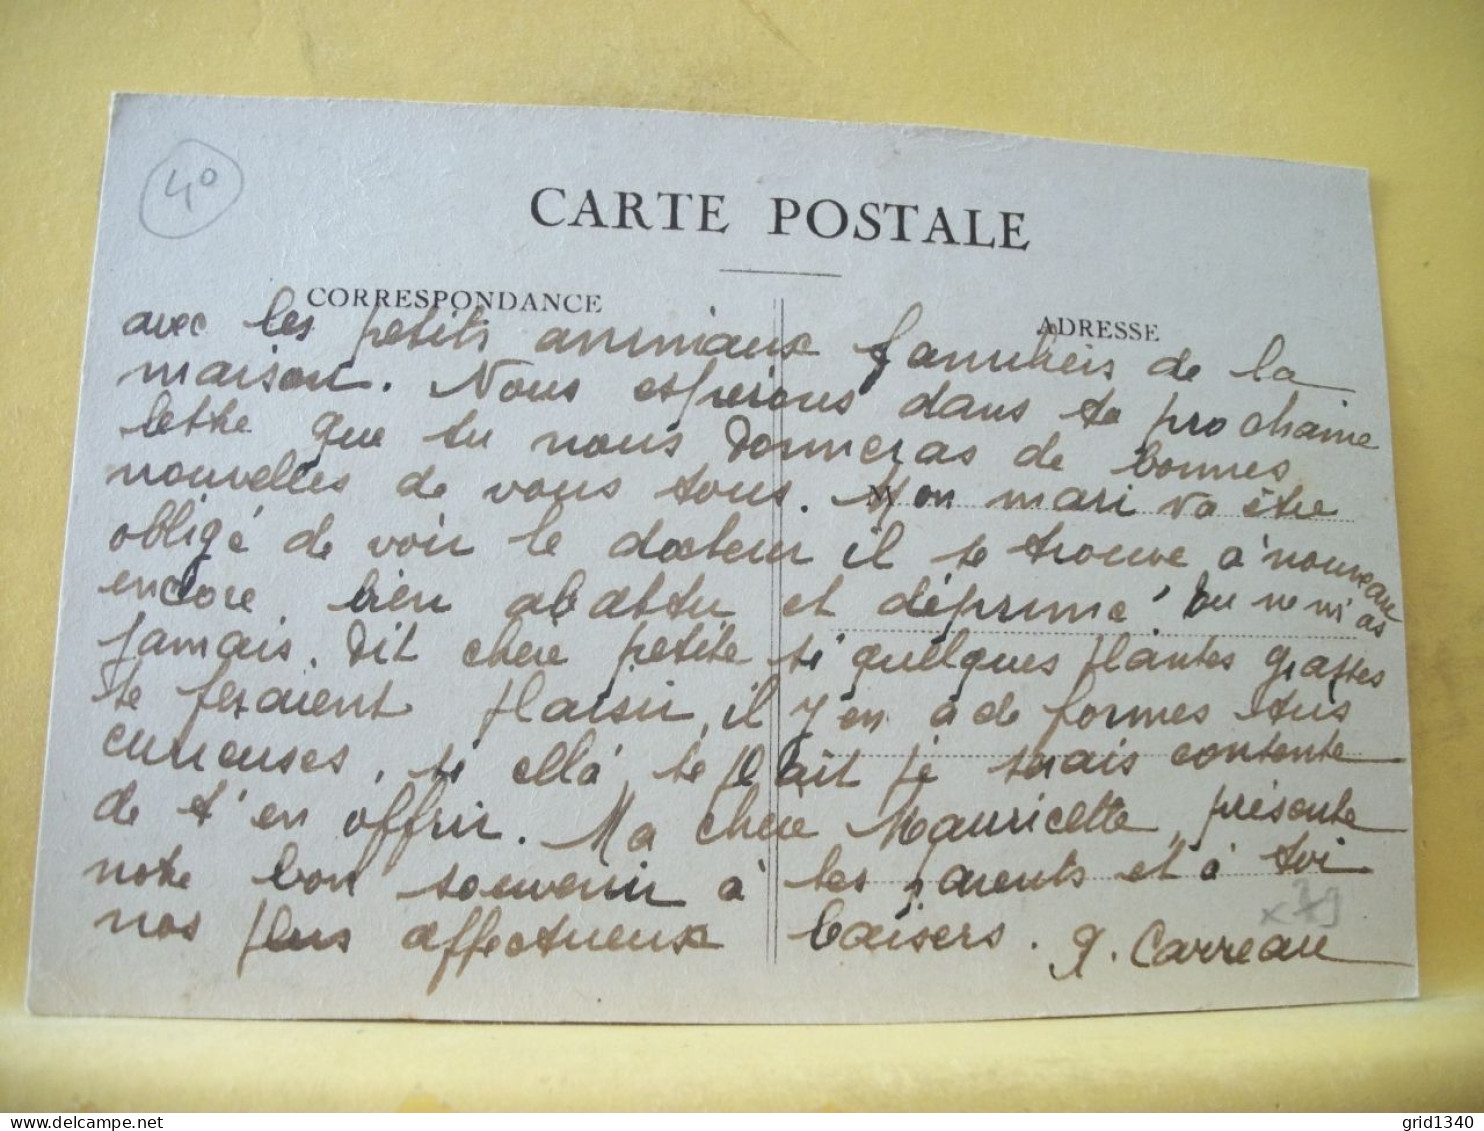 40
CARTE POSTALE
CORRESPONDANCE
ADRESSE
avec les petits animaux familiers de la
maison. Nous espérons dans ta prochaine
lettre que tu nous donneras de bonnes
nouvelles de vous tous. Mon mari va être
obligé de voir le docteur il se trouve à nouveau
encore bien abattu et déprimé!
jamais. Dit chère petite si quelques plantes grasses
te feraient plaisir, il y en a de formes très
curieuses, si cela te plait je serais contente
de t'en offrir. Ma chère Mauricette, présente
notre bon souvenir à tes parents et à toi
nos plus affectueux baisers. G. Carreau
delcampe.net
grid1340